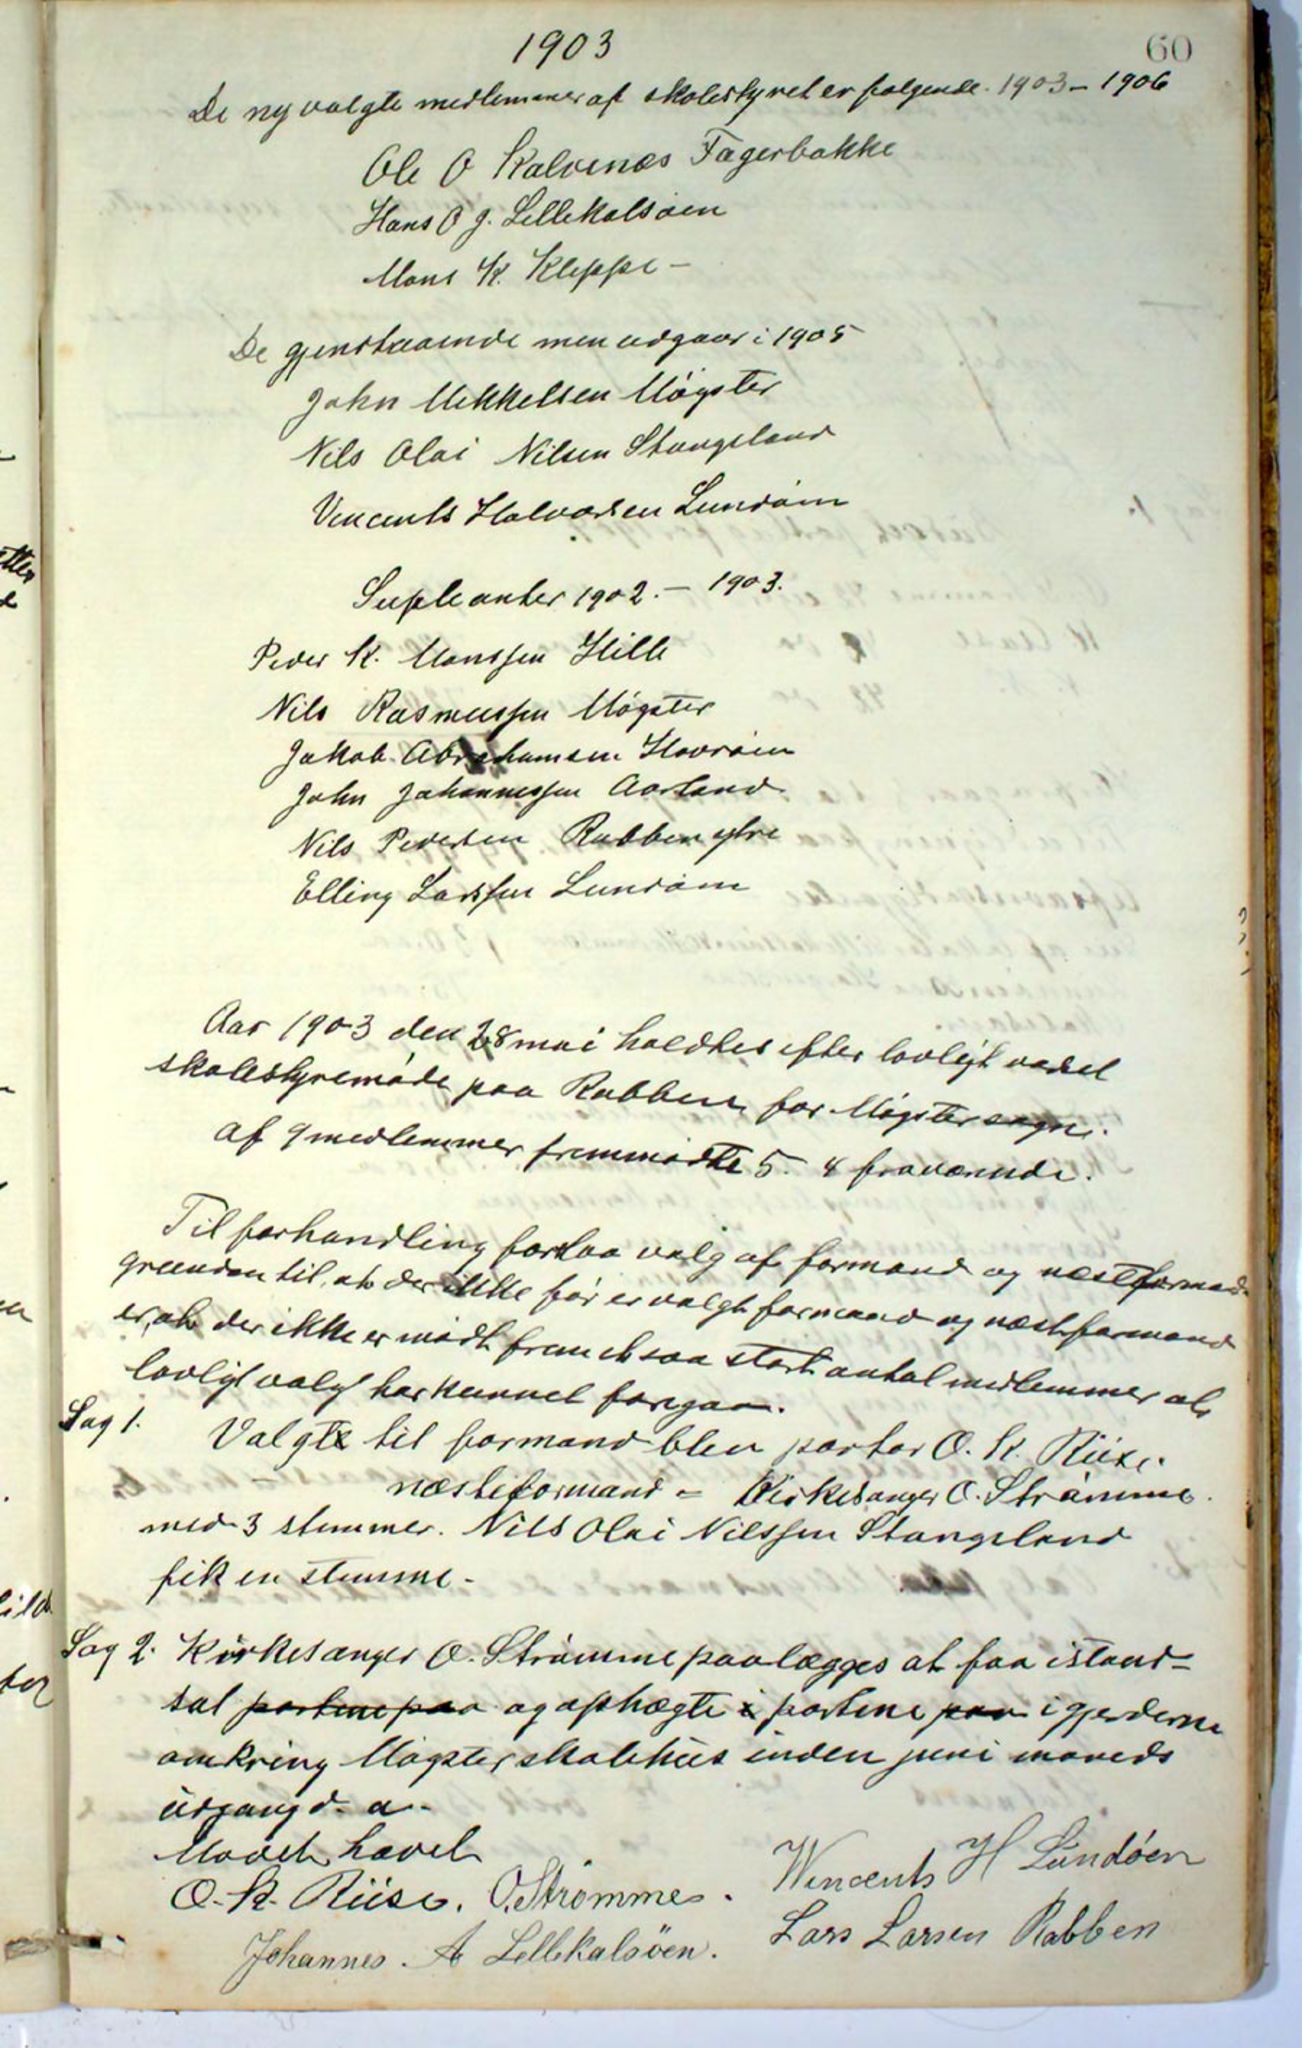 1903
60
De ny valgte medlemmer af skolestyret er følgende. 1903 - 1906
Ole O Kalvenæs Fagerbakke
Hans O J. Lillekalsøen
Mons K. Kleppe -
De gjenstaaende men udgaar i 1905
John Mikkelsen Møgster
Nils Olai Nilsen Stangeland
Vincents Halvorsen Lundøen
Supleanter 1902. - 1903.
Peder K. Monssen Hille
Nils Rasmussen Møgster
Jakob Abrahamsen Hovsøen
John Johannessen Aarland
Nils Pedersen Rabben ytre
Elling Larssen Lundøen
Aar 1903 den 28 mai holdtes efter lovligt varsel
skolestyremøde paa Rabben for Møgster sogn.
af 9 medlemmer fremmødte 5. 4 fraværende.
Til forhandling forelaa valg af formand og næstformand
grunden til, at der ikke før er valgt formand og næstformand
er, at der ikke er mødt frem et saa stort antal medlemmer at
lovligt valg har kunnet foregaa.
Sag 1. Valgte til formand blev pastor O. K. Riise.
næsteformand = Kirkesanger O. Strømme.
med 3 stemmer. Nils Olai Nilssen Stangeland
fik en stemme -
Sag 2. Kirkesanger O. Strømme paalægges at faa istand-
sat portene paa og ophægte i portene paa i gjerderne
omkring Møgster skolehus inden juni maaneds
udgang d. a.
Mødet hævet
O. K. Riise. O. Strømme. Wincents H Lundøen
Johannes A Lillekalsøen. Lars Larsen Rabben